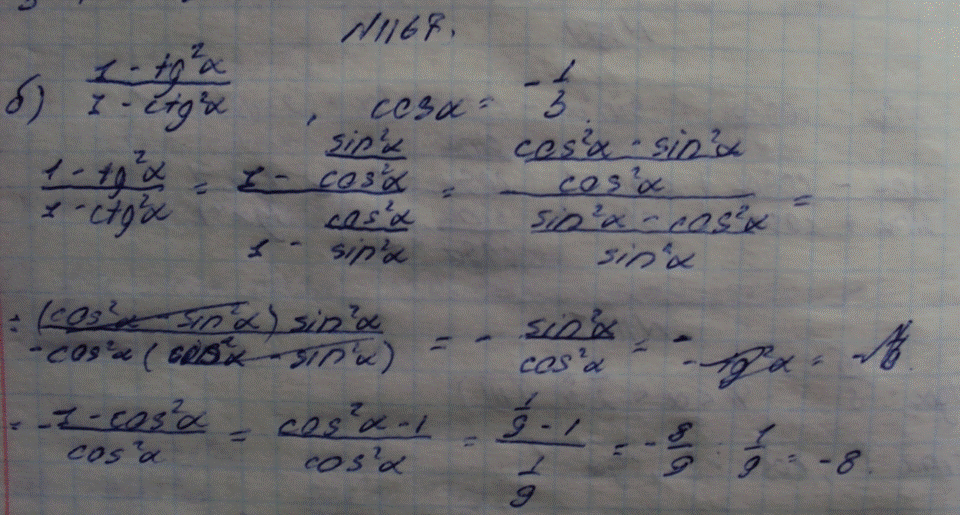 N1167.
б) (1 - tg²α)/(1 - ctg²α), cosα = -1/3
(1 - tg²α)/(1 - ctg²α) = (1 - sin²α/cos²α)/(1 - cos²α/sin²α) = ((cos²α - sin²α)/cos²α)/((sin²α - cos²α)/sin²α) =
= ((cos²α - sin²α) sin²α)/(-cos²α (cos²α - sin²α)) = - sin²α/cos²α = - -tg²α = -
= -(1 - cos²α)/cos²α = (cos²α - 1)/cos²α = (1/9 - 1)/(1/9) = -8/9 : 1/9 = -8.